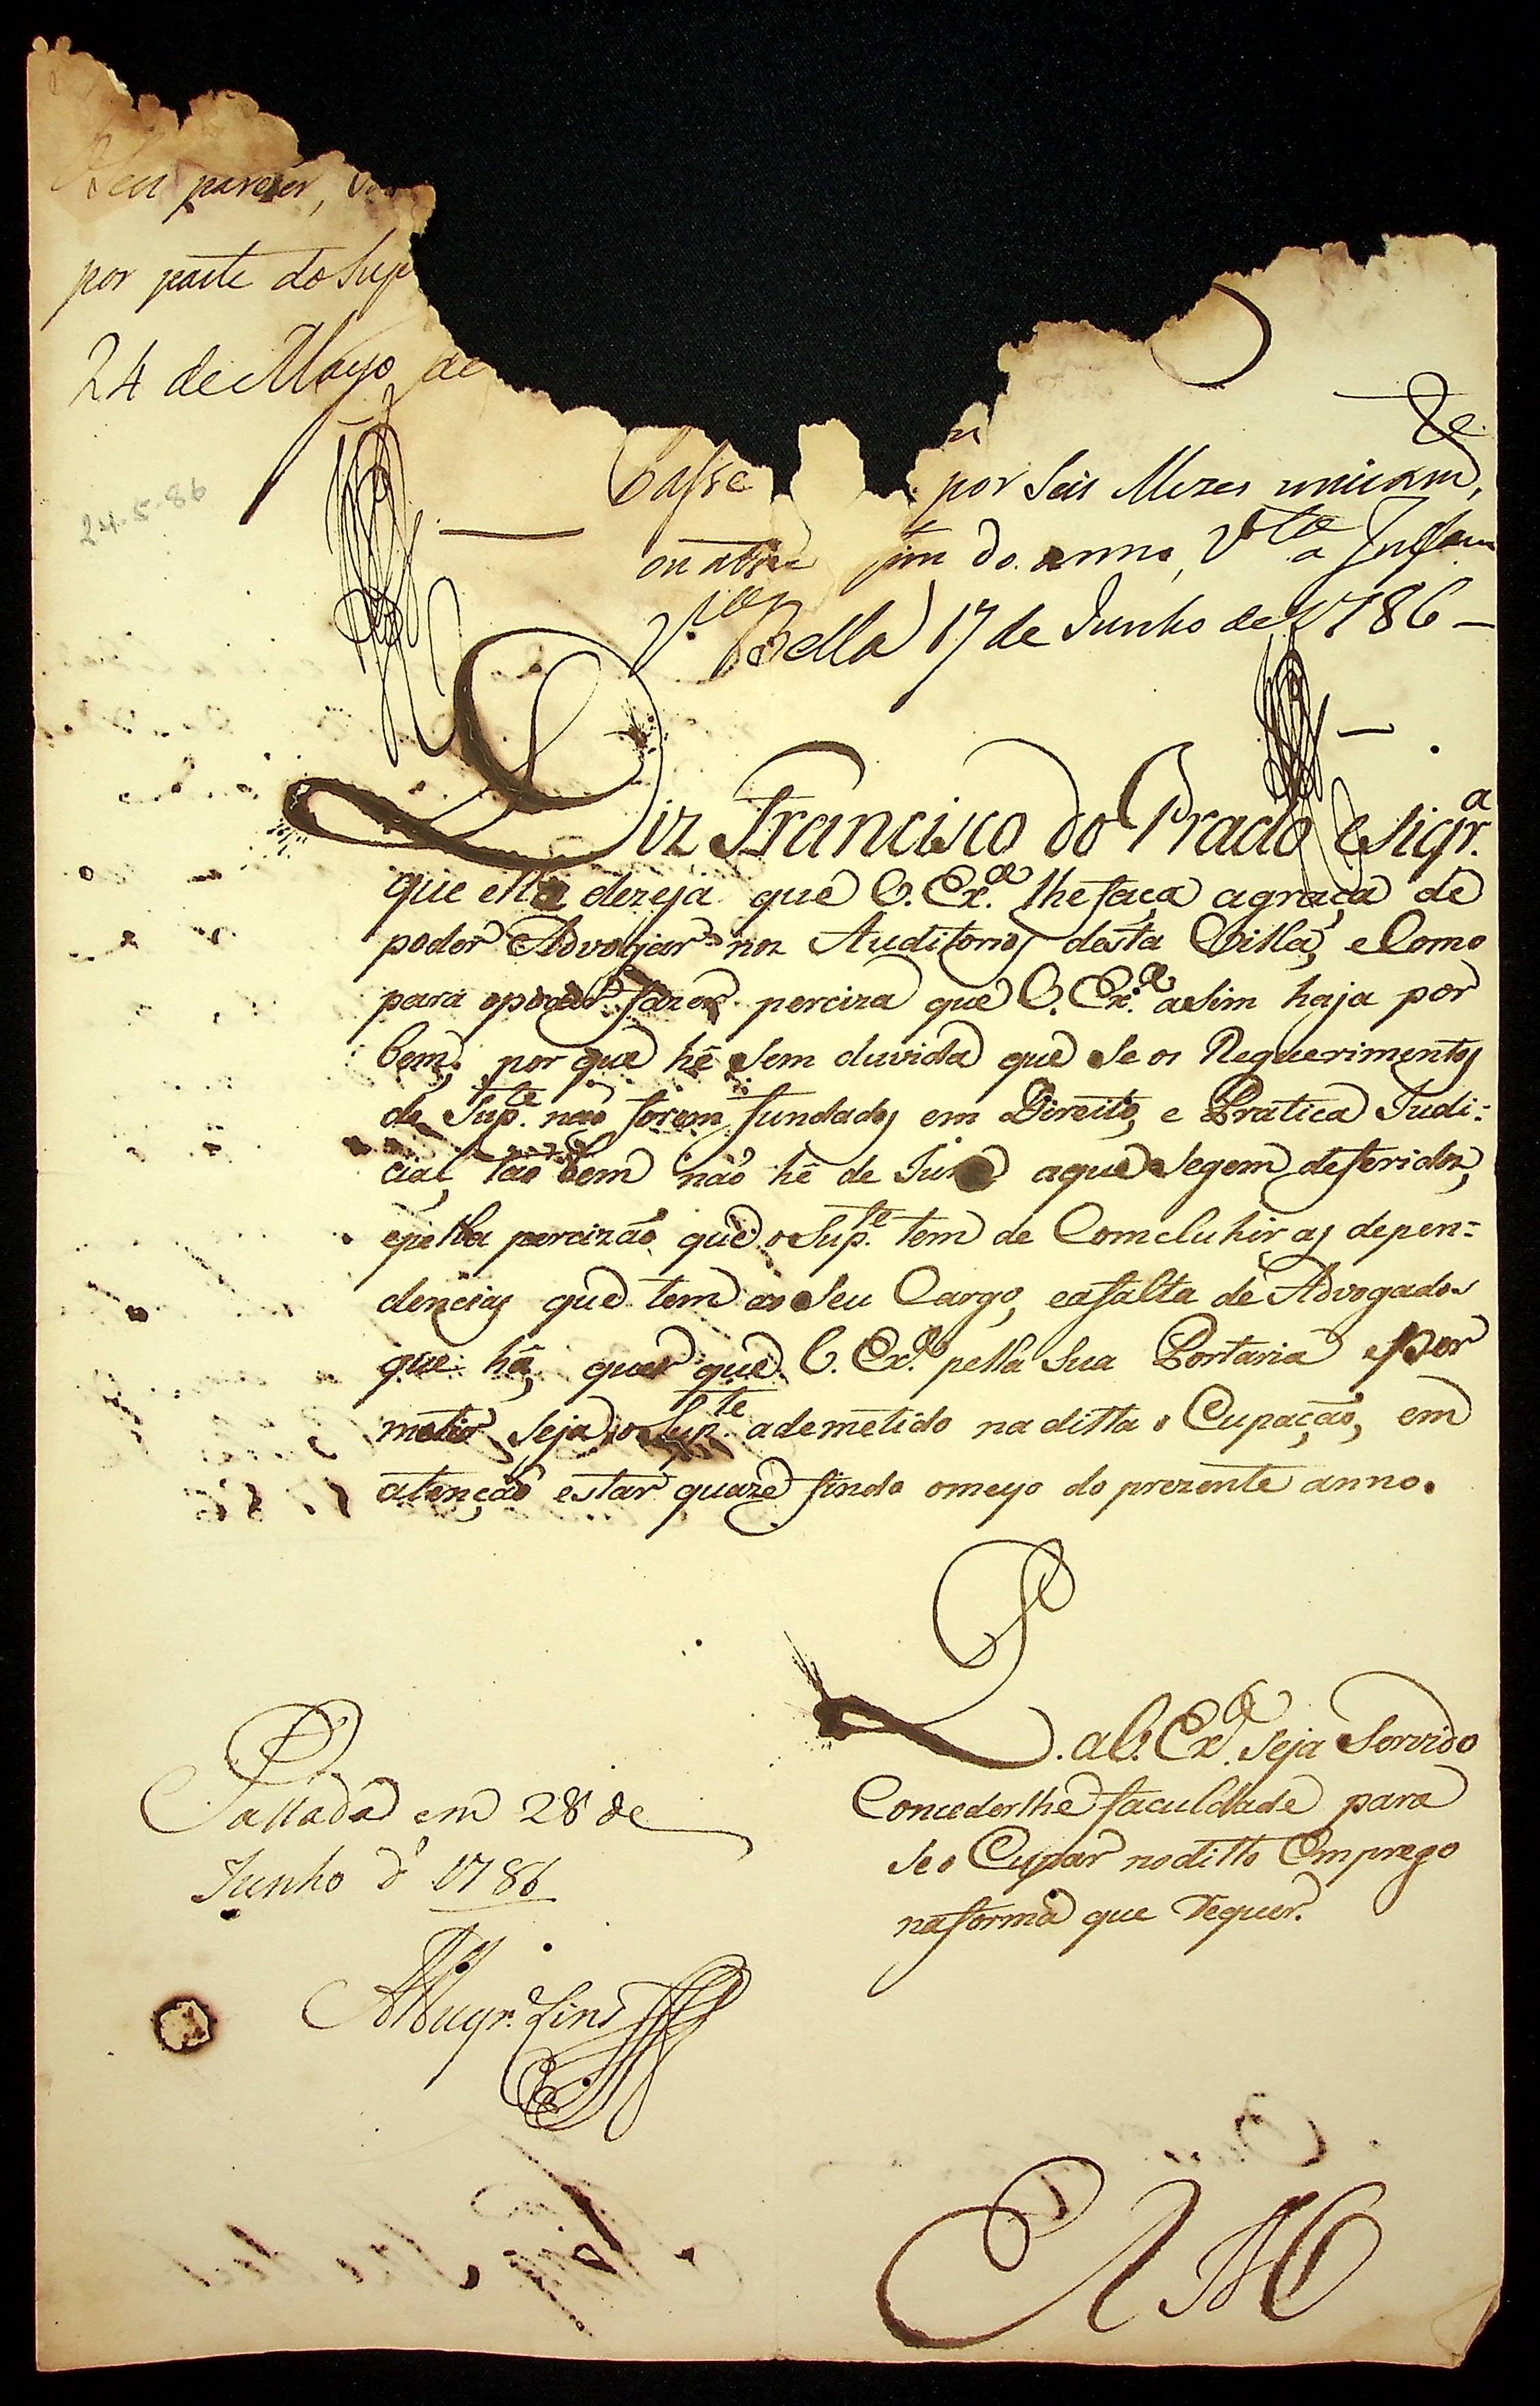 Seu pareser,
por parte do Sup
24 de Mayo de
24-5-86
Passe por Seis Mezes unicam.te,
fim do anno, V.ta a Inform
V.a Bella 17 de Junho de 1786 —
Diz Francisco do Prado e Siqr.a
que elle dezeja que V. Ex.a lhe faça agraça de
poder Advogar nos Auditorios desta Villa, e Como
para opoder fazer perciza que V. Ex.a asim haja por
bem, por que hê sem duvida que se os Requerimentos
do Sup.te não forem fundados em Direito, e Pratica Judi:
cial, tão bem não hê de Jure aque Segem deferidos,
epella percizão que o Sup.te tem de Comcluhir as depen:
dencias que tem ao Seu Cargo, eafalta de Advogados
que hâ, quer que V. Ex.a pella Sua Portaria per
metir seja o Sup.te ademetido na ditta o Cupação, em
atenção estar quaze findo omeyo do prezente anno.
P. a V. Ex.a seja Servido
Concederlhe faculdade para
se o Cupar no ditto Emprego
na forma que Requer.
Passada em 28 de
Junho d' 1786
E R M